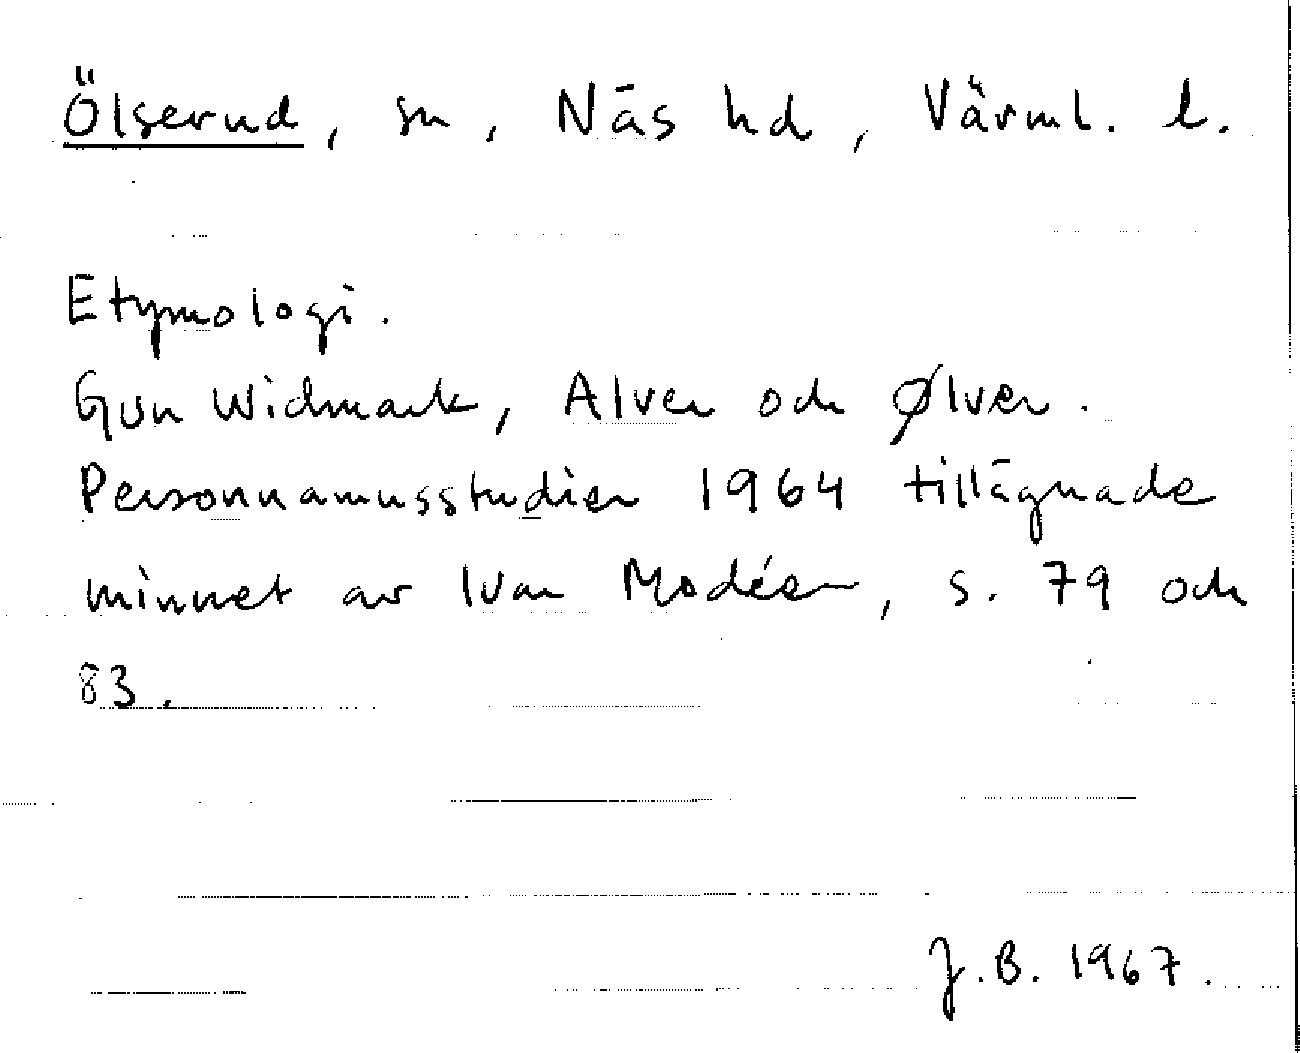 Ölserud, sn, Näs hd, Värml. l.
Etymologi.
Gun Widmark, Alver och Ølver.
Personnamnsstudier 1964 tillägnade
minnet av Ivar Modéer, s. 79 och
83.
J.B. 1967.